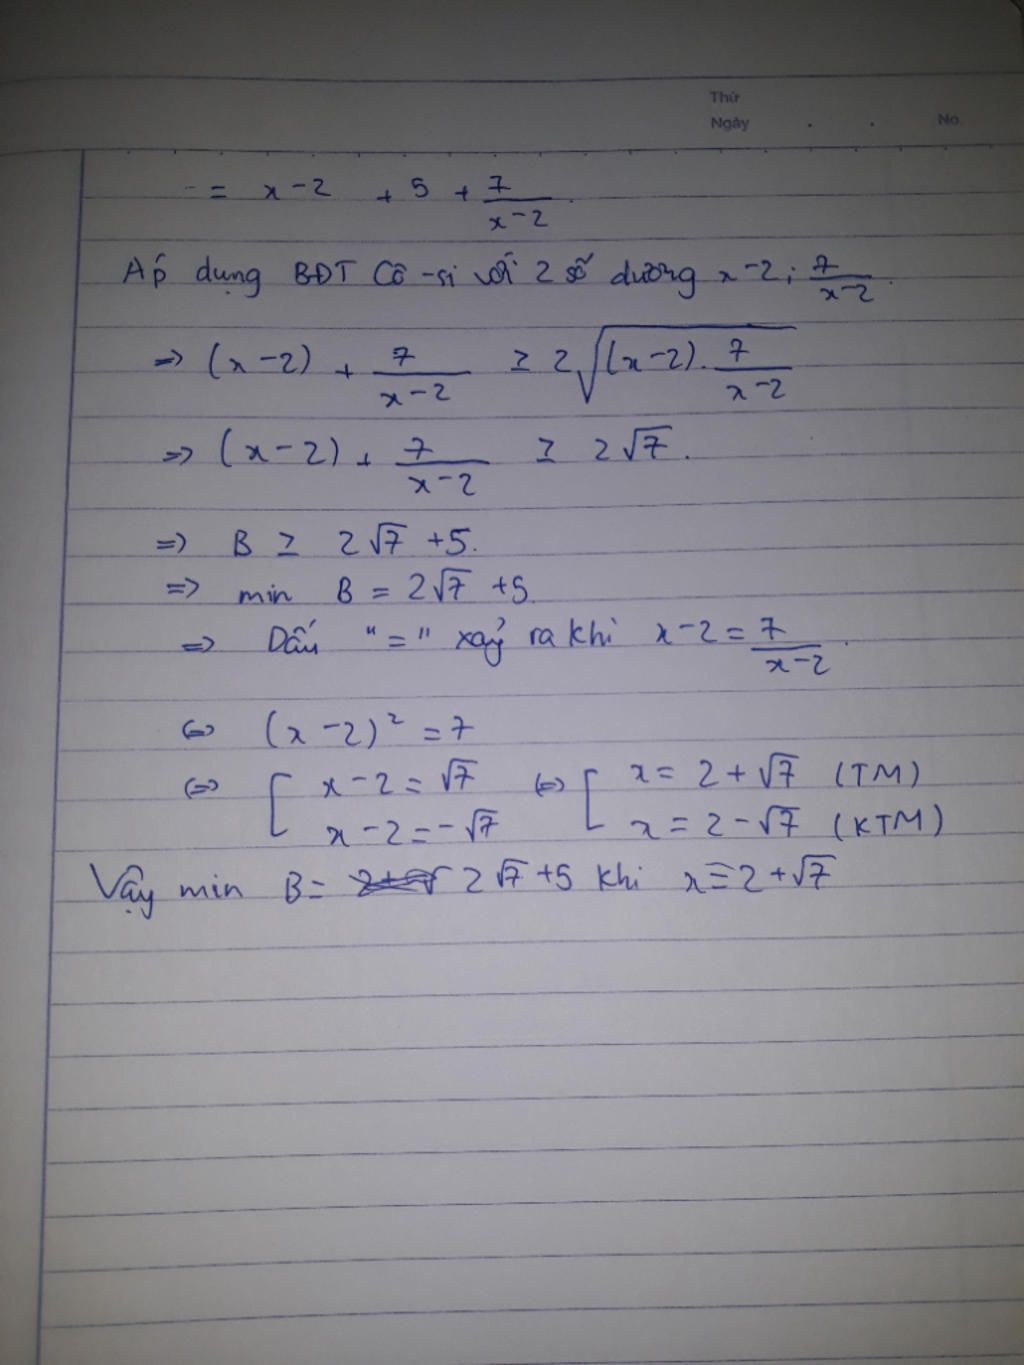 Thứ
Ngày . . No.
= x-2 + 5 + 7/(x-2).
Áp dụng BĐT Cô-si với 2 số dương x-2; 7/(x-2).
=> (x-2) + 7/(x-2) ≥ 2√((x-2).7/(x-2))
=> (x-2) + 7/(x-2) ≥ 2√7.
=> B ≥ 2√7 +5.
=> min B = 2√7 +5.
=> Dấu "=" xảy ra khi x-2 = 7/(x-2).
<=> (x-2)² = 7
<=> [ x-2 = √7 <=> [ x = 2+√7 (TM)
x-2 = -√7 x = 2-√7 (KTM)
Vậy min B = 2√7 +5 khi x = 2+√7